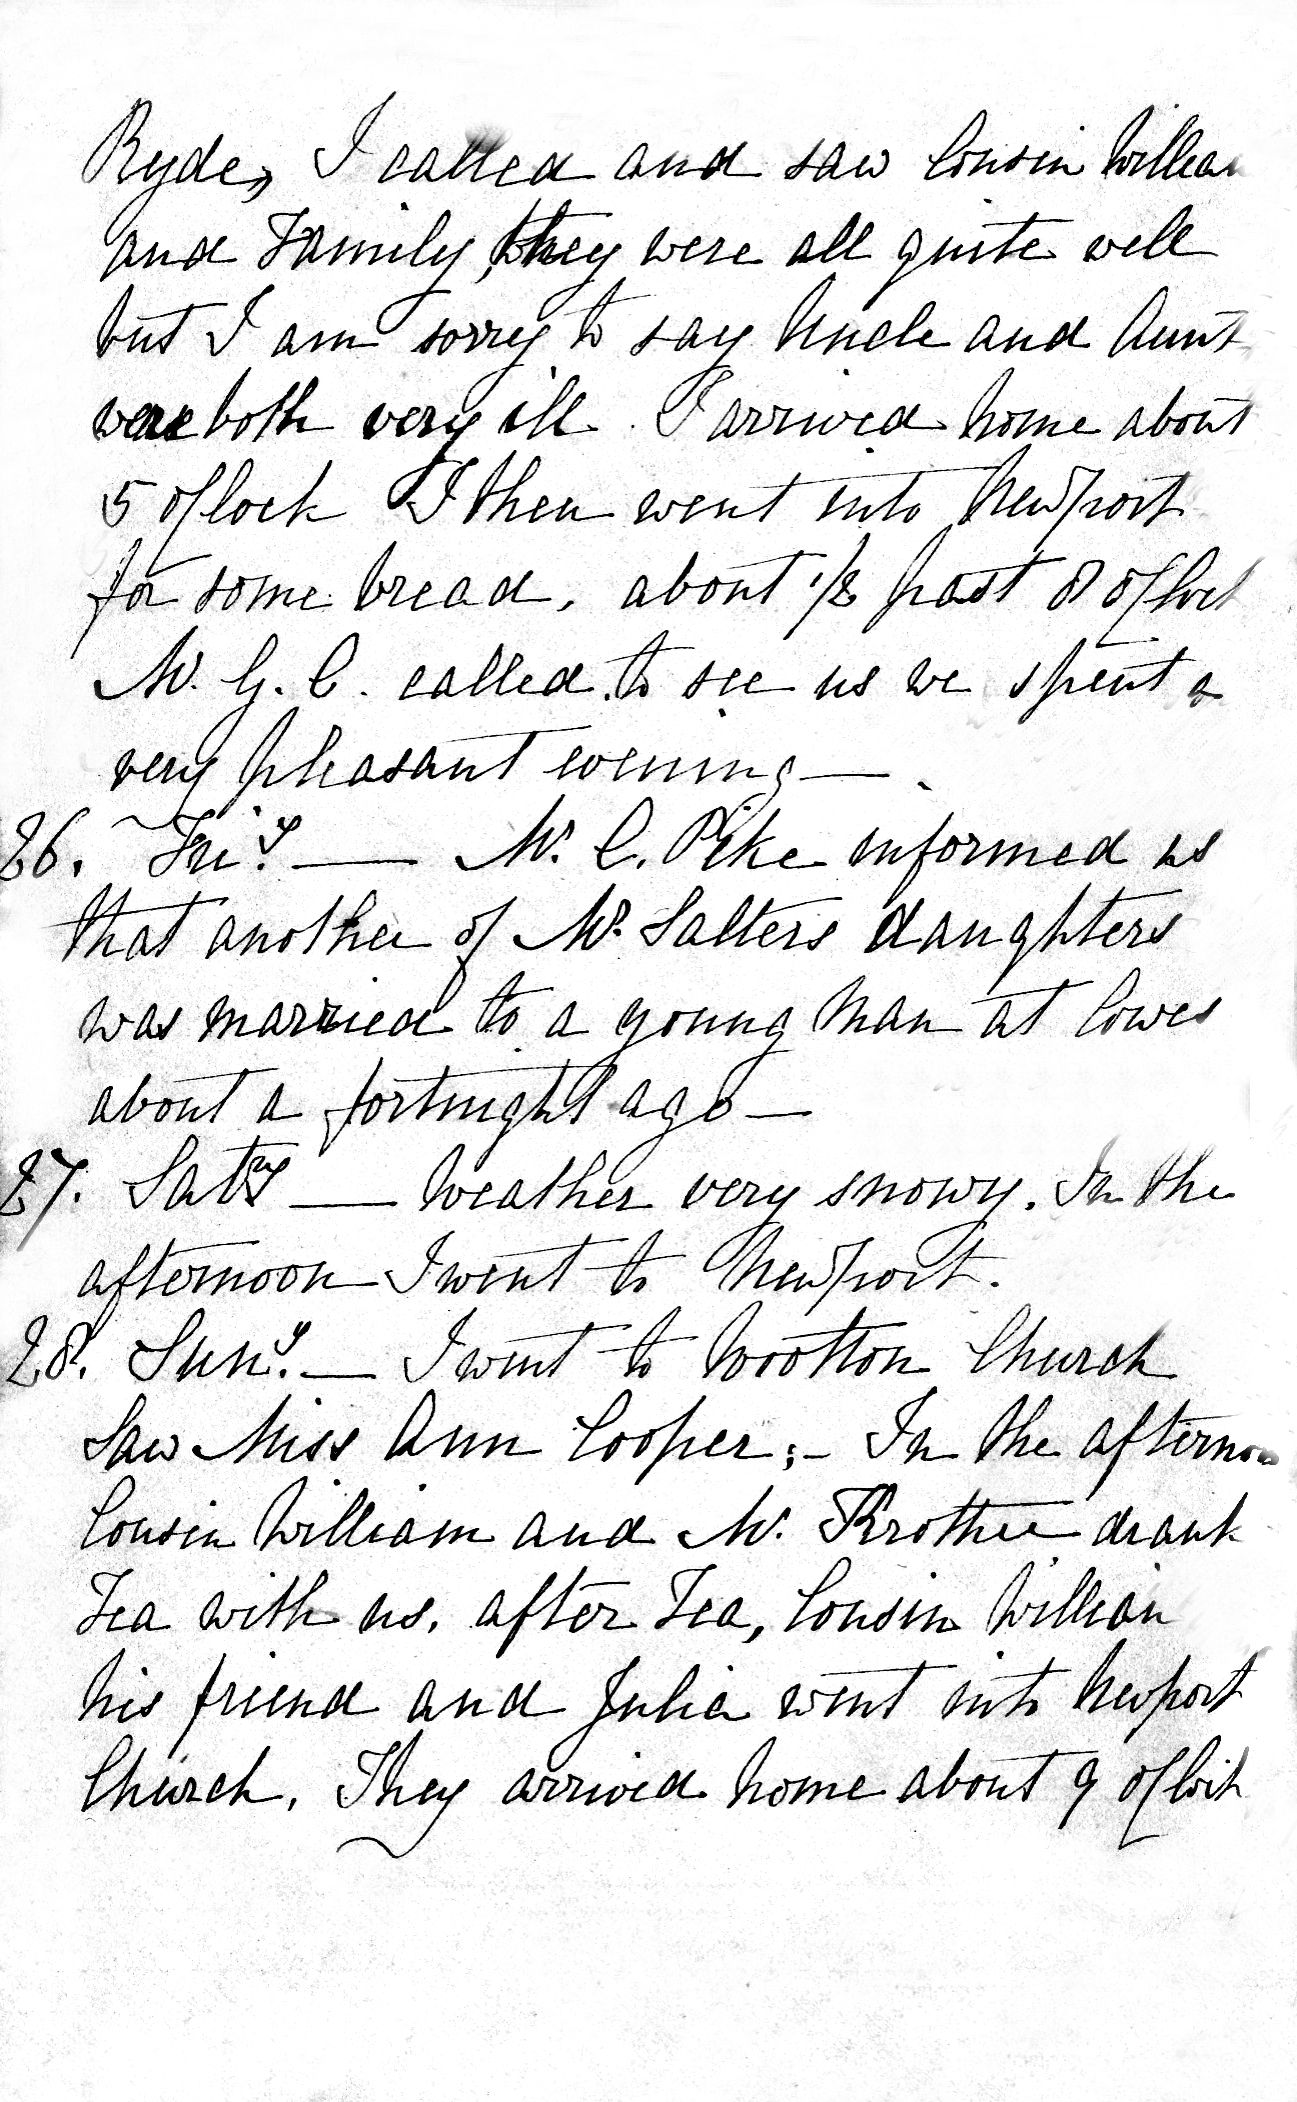 Ryde, I called and saw Cousin William
and Family, they were all quite well
but I am sorry to say Uncle and Aunt
were both very ill. I arrived home about
5 oClock I then went into Newport
for some bread. about 1/2 past 8 oClock
Mr. G. C. called to see us we spent a
very pleasant evening —.
26. Friy. — Mr. C. Pike informed us
that another of Mr. Salters daughters
was married to a young Man at Cowes
about a fortnight ago —
27. Satry — Weather very snowy. In the
afternoon I went to Newport.
28. Suny. — I went to Wootton Church
Saw Miss Ann Cooper;- In the afternoon
Cousin William and Mr. drank
Tea with us. after Tea, Cousin William
his friend and Julia went into Newport
Church. They arrived home about 9 oClock